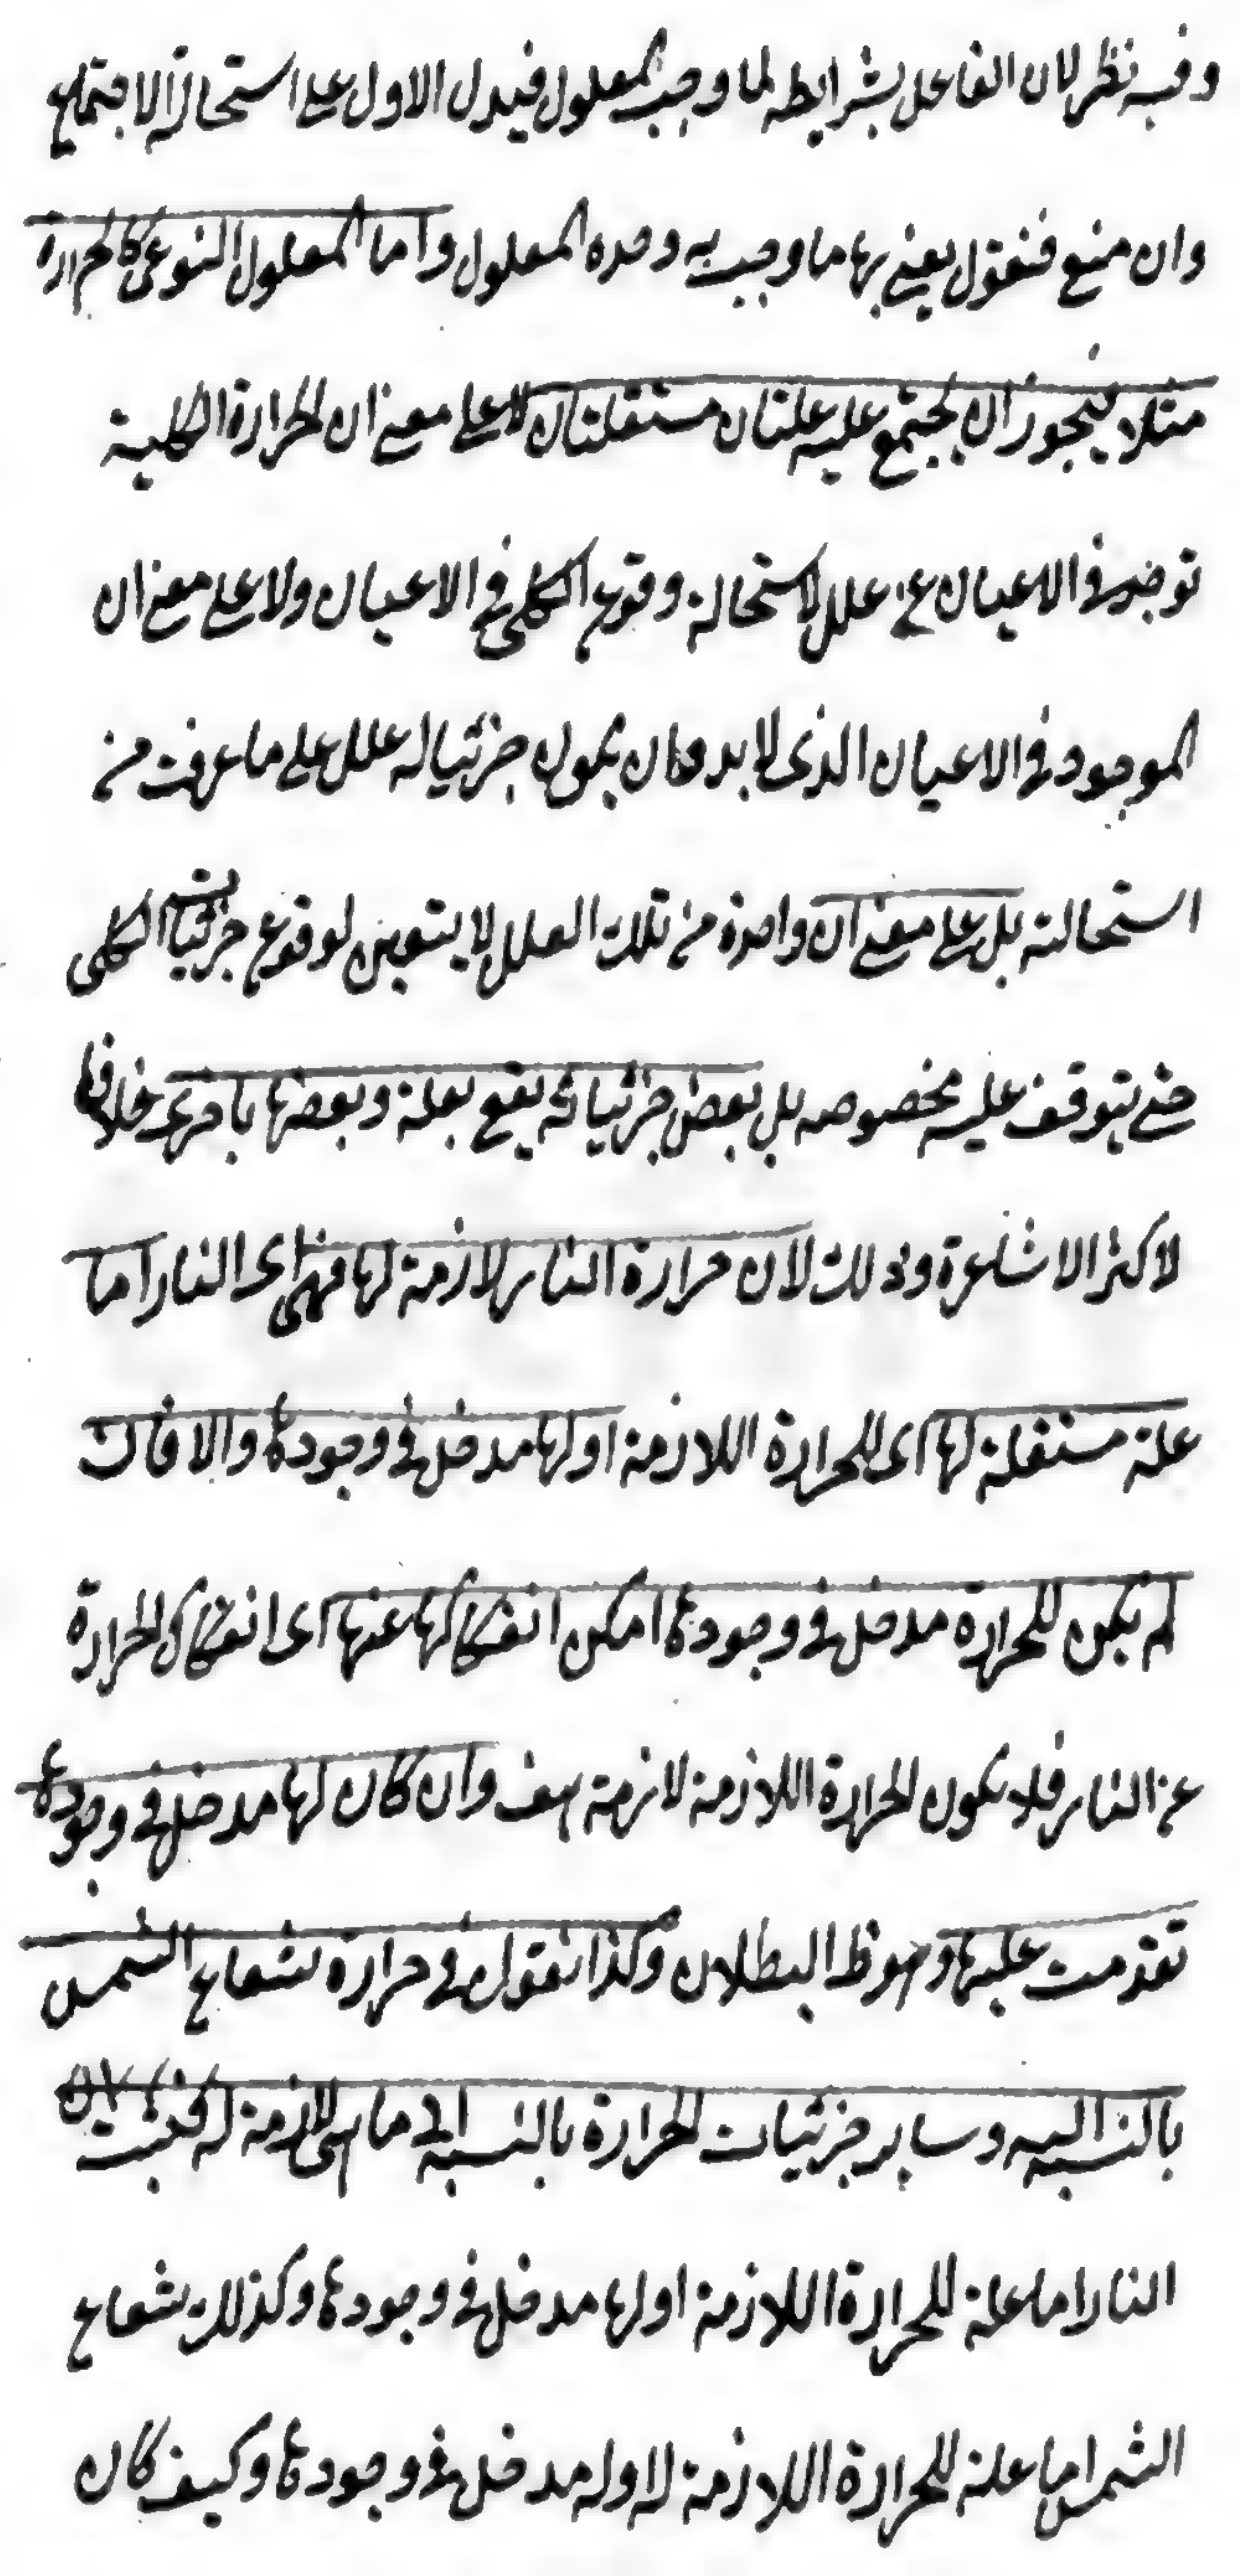 وفيه نظر لان الفاعل بشرايطه لما وجب المعلول فيدل الاول على استحالة الاجتماع
وان منع فنقول يعنى بها ما وجب به وحده المعلول واما المعلول النوعى كالحرارة
مثلا فيجوز ان يجتمع عليه علتان مستقلتان لا على معنى ان الحرارة الكلية
توجد فى الاعيان عن علل لاستحالة وقوع الكلى فى الاعيان ولا على معنى ان
الموجود فى الاعيان الذى لا بد وان يكون جزئيا له علل على ما عرفت من
استحالته بل على معنى ان واحدة من تلك العلل لا يتعين لوقوع جزئيات الكلى
حتى يتوقف عليه بخصوصه بل بعض جزئياته يقع بعلة وبعضها باخرى خلافا
لاكثر الاشاعرة وذلك لان حرارة النار لازمة لها فهى اى النار اما
علة مستقلة لها اى للحرارة اللازمة او لها مدخل فى وجودها والا فان
لم يكن للحرارة مدخل فى وجودها امكن انفكاكها عنها اى انفكاك الحرارة
عن النار فلا يكون الحرارة اللازمة لازمة هف وان كان لها مدخل فى وجودها
تقدمت عليها وهو ظ البطلان وكذا نقول فى حرارة شعاع الشمس
بالنسبة اليه وساير جزئيات الحرارة بالنسبة الى ما هى لازمة له فثبت ان
النار اما علة للحرارة اللازمة او لها مدخل فى وجودها وكذلك شعاع
الشمس اما علة للحرارة اللازمة له او له مدخل فى وجودها وكيف كان